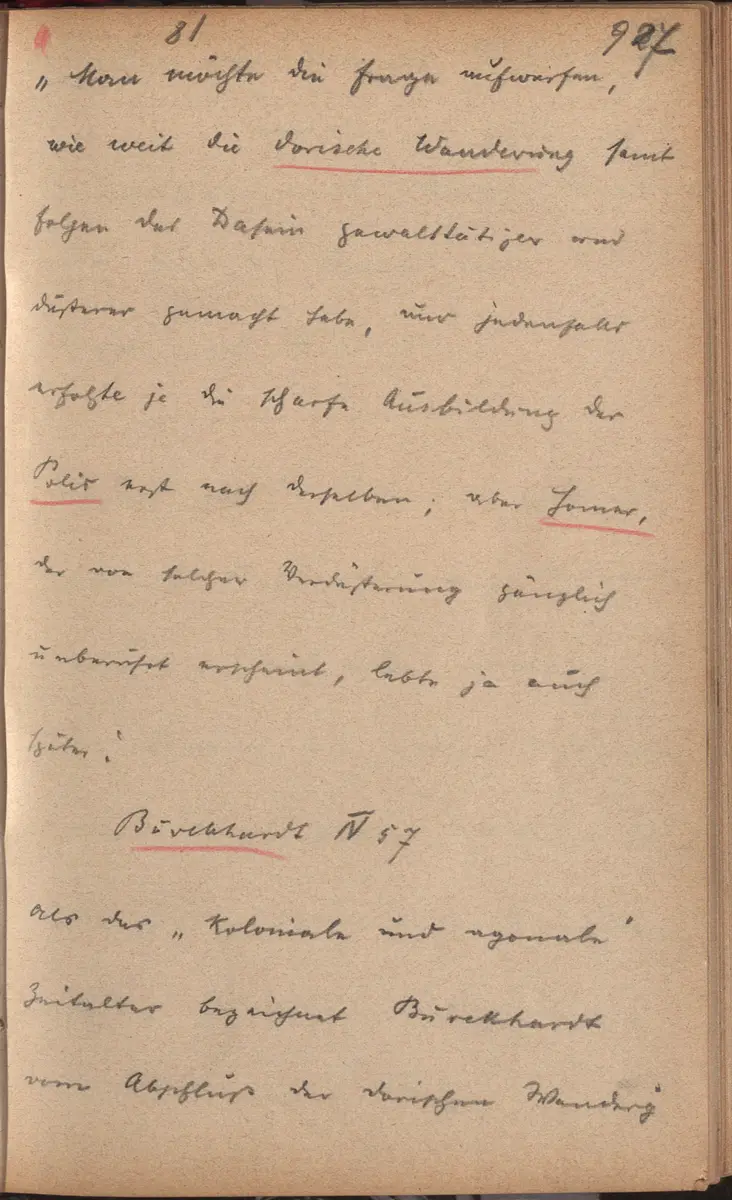 81 927
„Man möchte die Frage aufwerfen,
wie weit die dorische Wanderung samt
Folgen das Dasein gewalttätiger und
düsterer gemacht habe, und jedenfalls
erfolgte ja die scharfe Ausbildung der
Polis erst nach derselben; aber Homer,
der von solcher Verdüsterung gänzlich
unberührt erscheint, lebte ja auch
später."
Burckhardt IV 57
Als das „Koloniale und agonale"
Zeitalter bezeichnet Burckhardt
vom Abschluß der dorischen Wanderg